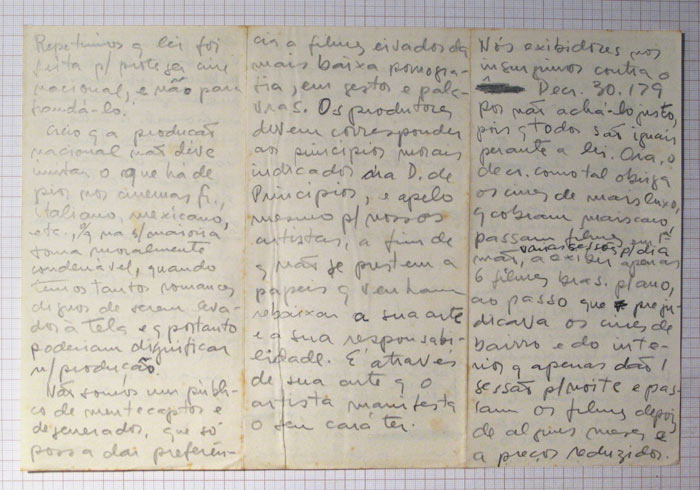 Repetimos q lei foi
feita p/ proteger cine
nacional, e não para
Creio q a produção
nacional não deve
imitar o que ha de
pior nos cinemas fr.,
italiano, mexicano,
etc., q na s/ maioria
toma moralmente
condenável, quando
temos tantos romances
dignos de serem leva-
dos à tela e q portanto
poderiam dignificar
n/ produção.
Não somos um públi-
co de mentecaptos e
degenerados, que só
possa dar preferên-
cia a filmes eivados da
mais baixa pornogra-
fia, em gestos e pala-
vras. Os produtores
devem corresponder
aos princípios morais
indicados na D. de
Princípios, e apelo
mesmo p/ nossos
artistas, a fim de
q não se prestem a
papeis q venham
rebaixar a sua arte
e a sua responsabi-
lidade. É através
de sua arte q o
artista manifesta
o seu caráter.
Nós exibidores nos
insurgimos contra o
Decr. 30.179
por não achá-lo justo,
pois q todos são iguais
perante a lei. Ora, o
decr. como tal obriga
os cines de mais luxo,
q cobram mais caro,
passam filmes em 1ª
mão, varias sessões p/ dia
a exibir apenas
6 filmes bras. p/ ano,
ao passo que preju-
dicava os cines de
bairro e do inte-
rior q apenas dão 1
sessão p/ noite e pas-
sam os filmes depois
de alguns meses e
a preços reduzidos.